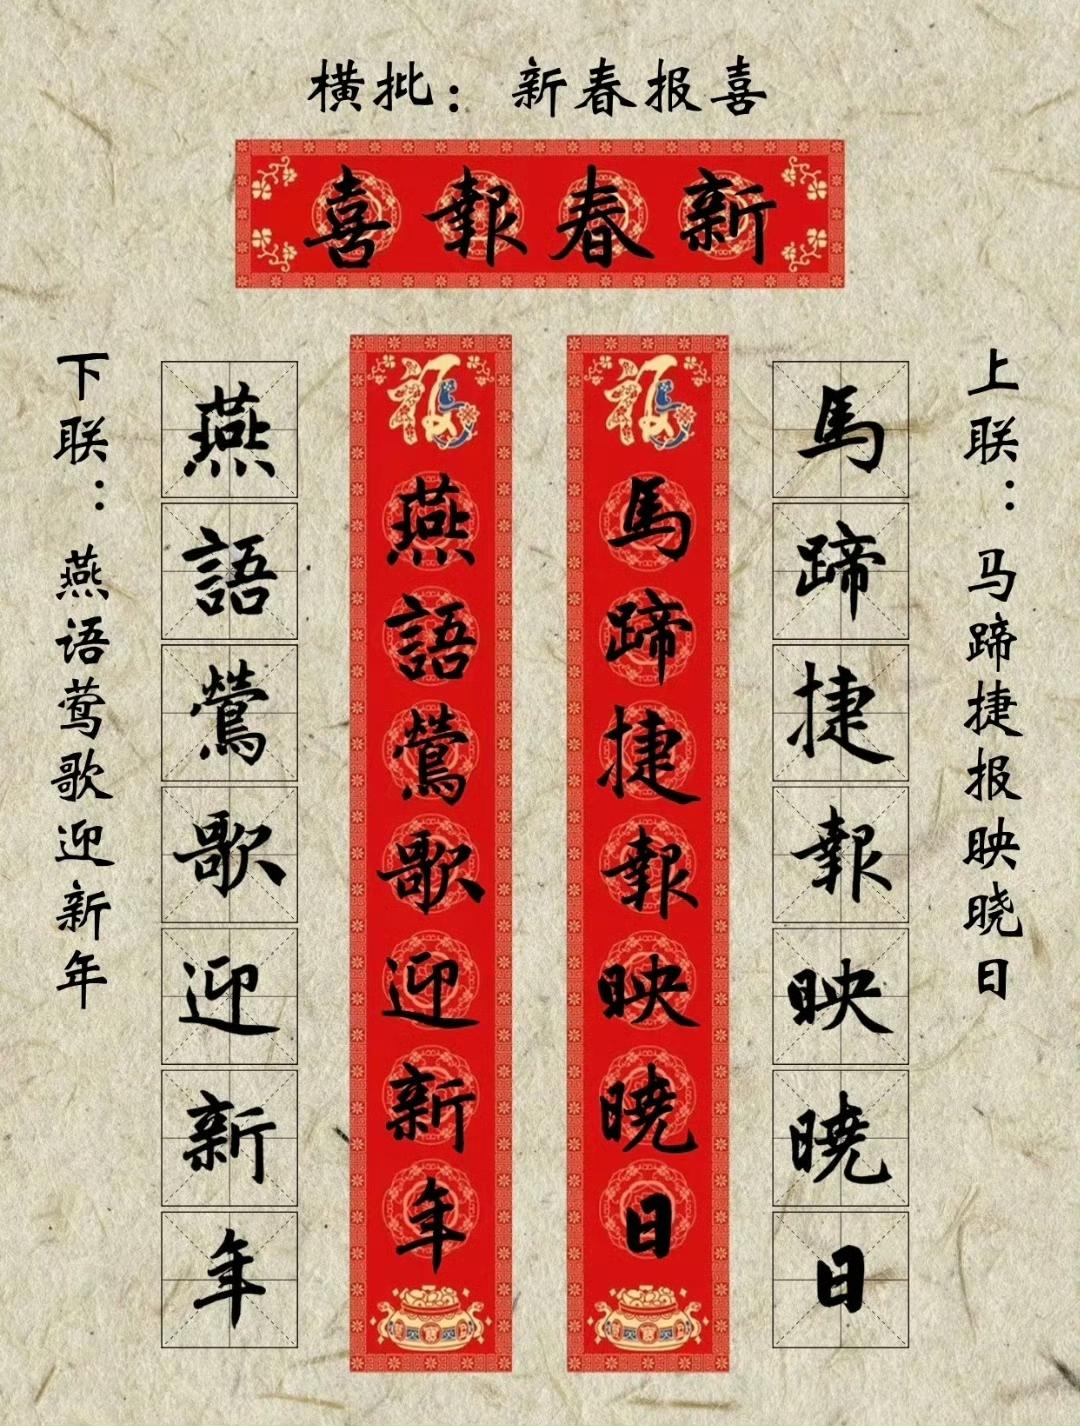 横批：新春报喜
新春報喜
上联：马蹄捷报映晓日
馬蹄捷報映曉日
福馬蹄捷報映曉日
福燕語鶯歌迎新年
燕語鶯歌迎新年
下联：燕语莺歌迎新年